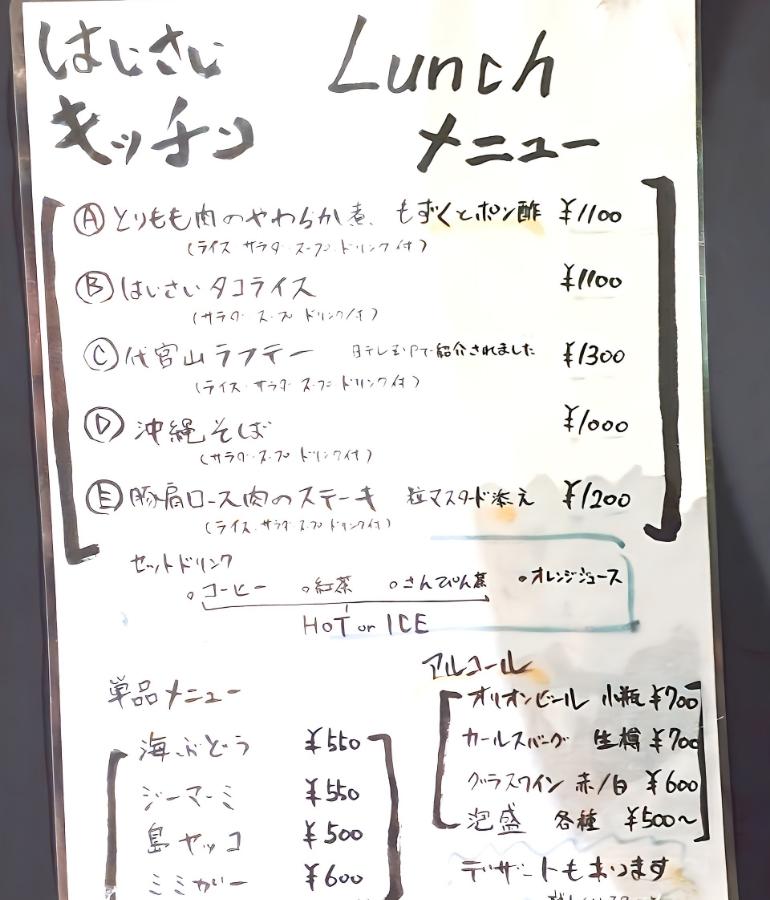 はいさい
キッチン
Lunch
メニュー
Ⓐ とりもも肉のやわらか煮、もずくとポン酢 ¥1100
(ライス サラダ・スープ ドリンク付)
Ⓑ はいさいタコライス ¥1100
(サラダ スープ ドリンク付)
Ⓒ 代官山ラフテー 日テレZIPで紹介されました ¥1300
(ライス・サラダ スープ ドリンク付)
Ⓓ 沖縄そば ¥1000
(サラダ・スープ ドリンク付)
Ⓔ 豚肩ロース肉のステーキ 粒マスタード添え ¥1200
(ライス・サラダ スープ ドリンク付)
セットドリンク
○コーヒー ○紅茶 ○さんぴん茶 ○オレンジジュース
HOT or ICE
単品メニュー
海ぶどう ¥550
ジーマーミ ¥550
島ヤッコ ¥500
ミミガー ¥600
アルコール
オリオンビール 小瓶 ¥700
カールスバーグ 生樽 ¥700
グラスワイン 赤/白 ¥600
泡盛 各種 ¥500〜
デザートもあります